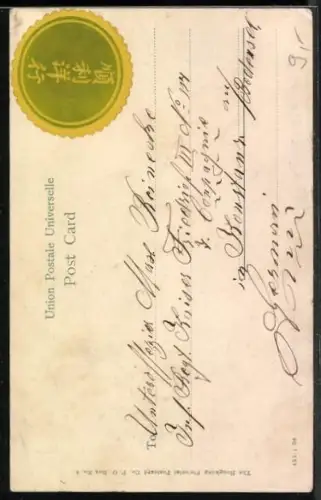 順利洋行
Union Postale Universelle
Post Card
To Unteroffizier Max Reinecke
Inf. Regt. Kaiser Friedrich III No. 114
Compagnie
in Konstanz a/ Bodensee
Germani
The Hongkong Pictorial Postcard Co. P. O. Box No.
9,-